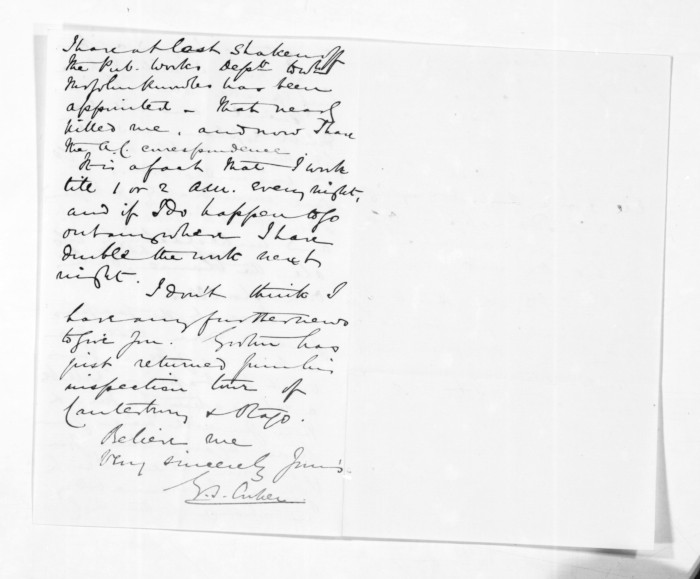 I have at last shaken off
the Pub. Works Deptt to wh
Mr John Knowles has been
appointed - that nearly
killed me, and now I have
the A.C. curespondence.
It is a fact that I work
tite 1 or 2 a.m. every night,
and if I do happen to go
out anywhere I have
double the work next
night.
I don't think I
have any further news
to give you. has
just returned from his
inspection tour of
Canterbury & Otago.
Believe me
Very sincerely yours.
G.S. Cooper